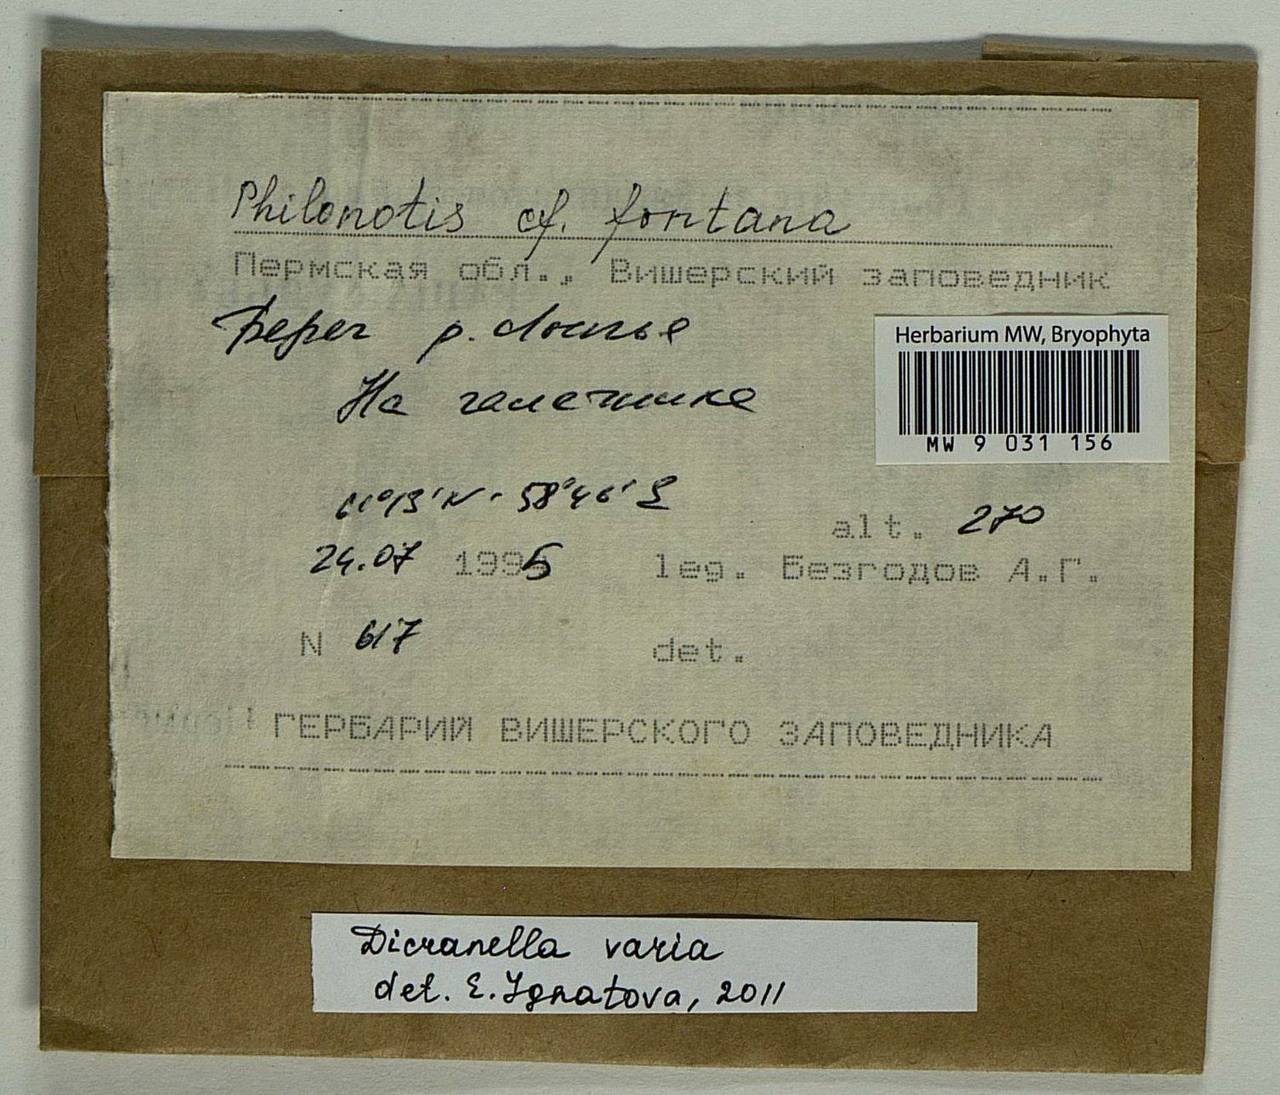 Philonotis cf. fontana
Пермская обл., Вишерский заповедник
Берег р. Лопья
На галечнике
Herbarium MW, Bryophyta
MW 9 031 156
61°13'N - 58°46'E
alt. 270
24.07 1995 leg. Безгодов А.Г.
N 617 det.
ГЕРБАРИЙ ВИШЕРСКОГО ЗАПОВЕДНИКА
Dicranella varia
det. E. Ignatova, 2011